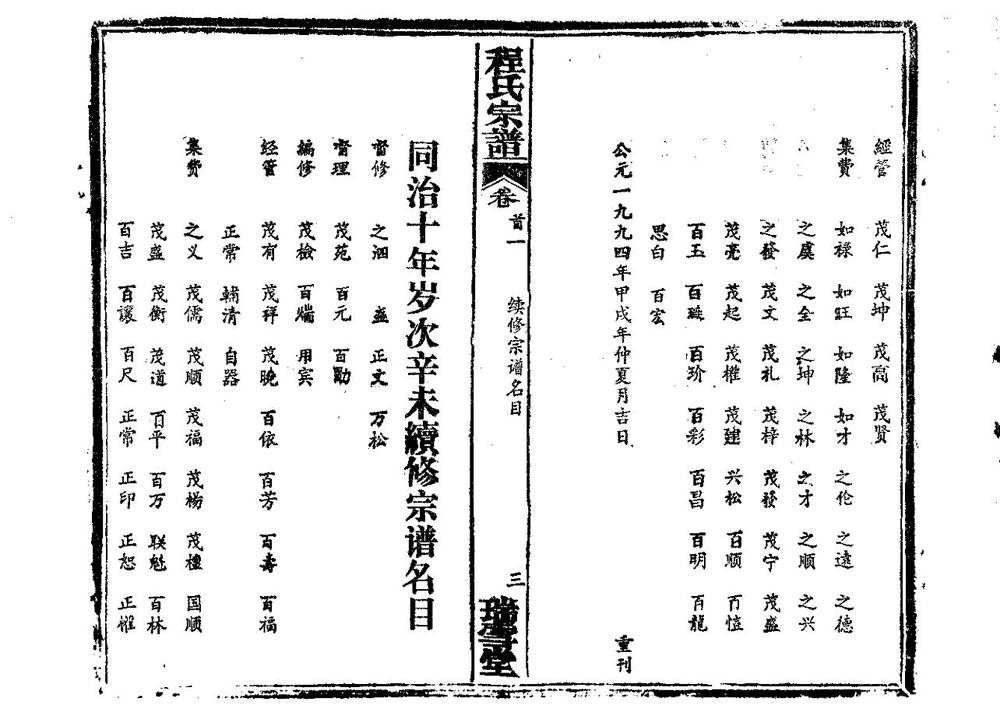 經管 茂仁 茂坤 茂高 茂贤
集费 如禄 如旺 如隆 如才 之伦 之遠 之德
之虞 之全 之坤 之林 之才 之顺 之兴
之發 茂文 茂礼 茂梓 茂發 茂宁 茂盛
茂亮 茂起 茂權 茂建 兴松 百顺 百愷
百玉 百 百玠 百彩 百昌 百明 百龍
思白 百宏
公元一九九四年甲戌年仲夏月吉日 重刊
程氏宗譜 卷首一 续修宗谱名目 三 瑞雪堂
同治十年岁次辛未續修宗谱名目
督修 之泗 盛 正文 万松
督理 茂苑 百元 百勛
編修 茂檢 百端 用宾
经管 茂有 茂祥 茂晚 百依 百芳 百壽 百福
正常 輔清 自器
集费 之义 茂儒 茂顺 茂福 茂楊 茂檀 国顺
茂盛 茂衡 茂道 百平 百万 联魁 百林
百吉 百讓 百尺 正常 正印 正恕 正惟